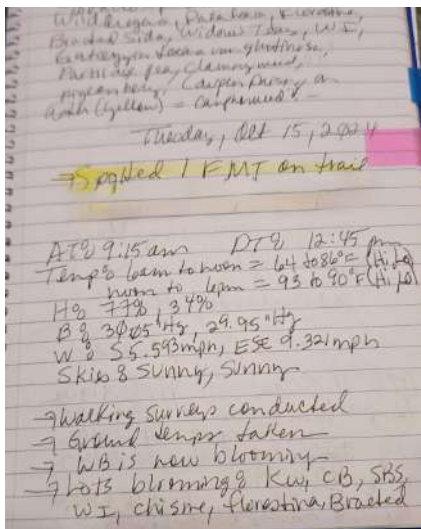 Wild oregano, Damianita, Florestina,
Bracted Sida, Widow's Tears, WI,
Partridge pea, Clammyweed,
pigeonberry, Cowpen Daisy, a
(yellow) = Camphorweed?
Tuesday, Oct 15, 2024
→ Spotted 1 FMT on trail
AT: 9:15am DT: 12:45 pm
Temp: 6am to noon = 64 to 86°F (Hi, Lo)
noon to 6pm = 93 to 90°F (Hi, Lo)
H: 77%, 34%
B: 30.05"Hg, 29.95"Hg
W: S 5.593mph, ESE 9.321mph
Skies: Sunny, Sunny
→ Walking surveys conducted
→ Ground temps taken
→ WB is now blooming
→ Lots blooming: KW, CB, SBS,
WI, chisme, florestina, Bracted